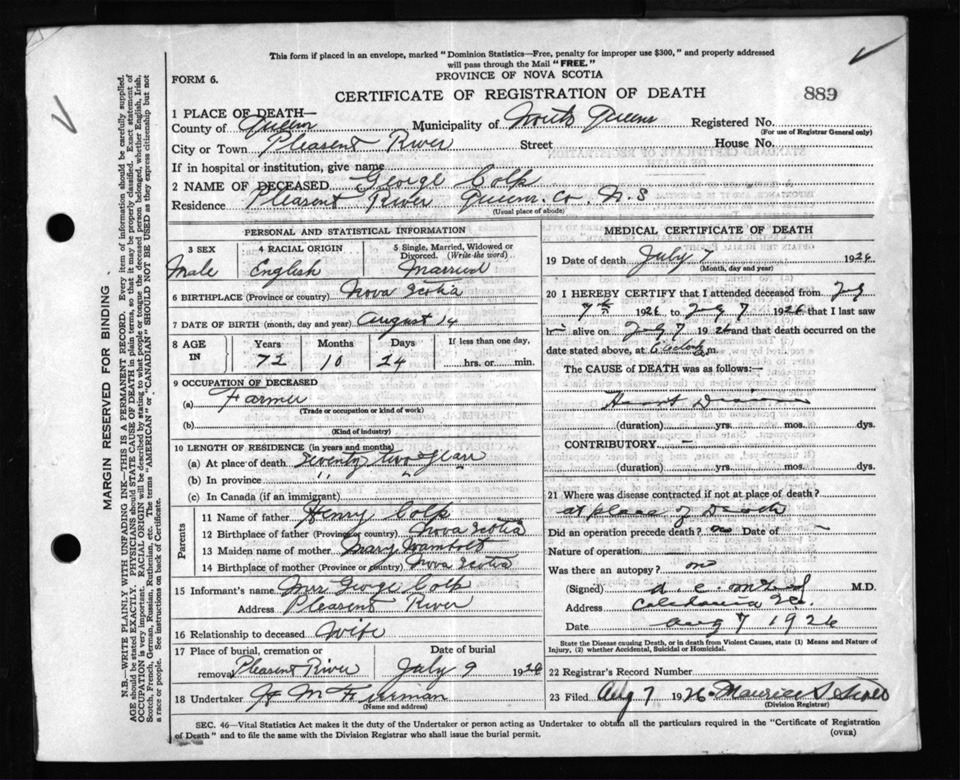 This form if placed in an envelope, marked "Dominion Statistics—Free, penalty for improper use $300," and properly addressed
will pass through the Mail "FREE."
FORM 6.
PROVINCE OF NOVA SCOTIA
CERTIFICATE OF REGISTRATION OF DEATH
889
1 PLACE OF DEATH—
County of Queens Municipality of North Queens Registered No.
(For use of Registrar General only)
City or Town Pleasent River Street House No.
If in hospital or institution, give name
2 NAME OF DECEASED George Colp
Residence Pleasent River Queens. Co. N.S
(Usual place of abode)
PERSONAL AND STATISTICAL INFORMATION
3 SEX 4 RACIAL ORIGIN 5 Single, Married, Widowed or
Divorced. (Write the word)
Male English Married
6 BIRTHPLACE (Province or country) Nova Scotia
7 DATE OF BIRTH (month, day and year) August 14
8 AGE IN Years Months Days If less than one day,
72 10 24 hrs. or min.
9 OCCUPATION OF DECEASED
(a) Farmer
(Trade or occupation or kind of work)
(b)
(Kind of industry)
10 LENGTH OF RESIDENCE (in years and months)
(a) At place of death Seventy two years
(b) In province " "
(c) In Canada (if an immigrant)
Parents
11 Name of father Henry Colp
12 Birthplace of father (Province or country) Nova Scotia
13 Maiden name of mother Mary
14 Birthplace of mother (Province or country) Nova Scotia
15 Informant's name Mrs George Colp
Address Pleasent River
16 Relationship to deceased Wife
17 Place of burial, cremation or Date of burial
removal Pleasent River July 9 1926
18 Undertaker
(Name and address)
MEDICAL CERTIFICATE OF DEATH
19 Date of death July 7 1926
(Month, day and year)
20 I HEREBY CERTIFY that I attended deceased from July
7th 1926 to July 7 1926 that I last saw
him alive on July 7 1926 and that death occurred on the
date stated above, at 6 oclock m.
The CAUSE of DEATH was as follows:—
Heart Disease
(duration) yrs. mos. dys.
CONTRIBUTORY —
(duration) yrs. mos. dys.
21 Where was disease contracted if not at place of death?
at place of Death
Did an operation precede death? no Date of —
Nature of operation —
Was there an autopsy? no
(Signed) M.D.
Address Caledonia
Date Aug 7 1926
State the Disease causing Death, or in death from Violent Causes, state (1) Means and Nature of
Injury, (2) whether Accidental, Suicidal or Homicidal.
22 Registrar's Record Number
23 Filed Aug 7 1926 Maurice S
(Division Registrar)
SEC. 46—Vital Statistics Act makes it the duty of the Undertaker or person acting as Undertaker to obtain all the particulars required in the "Certificate of Registration
of Death" and to file the same with the Division Registrar who shall issue the burial permit.
(OVER)
MARGIN RESERVED FOR BINDING
N.B.—WRITE PLAINLY WITH UNFADING INK—THIS IS A PERMANENT RECORD. Every item of information should be carefully supplied.
AGE should be stated EXACTLY. PHYSICIANS should STATE CAUSE OF DEATH in plain terms, so that it may be properly classified. Exact statement of
OCCUPATION is very important. RACIAL ORIGIN will be described by stating to what people or tongue the deceased person belonged, whether English, Irish,
Scotch, French, German, Russian, Ruthenian, etc. The terms "AMERICAN" or "CANADIAN" SHOULD NOT BE USED as they express citizenship but not
a race or people. See instructions on back of Certificate.